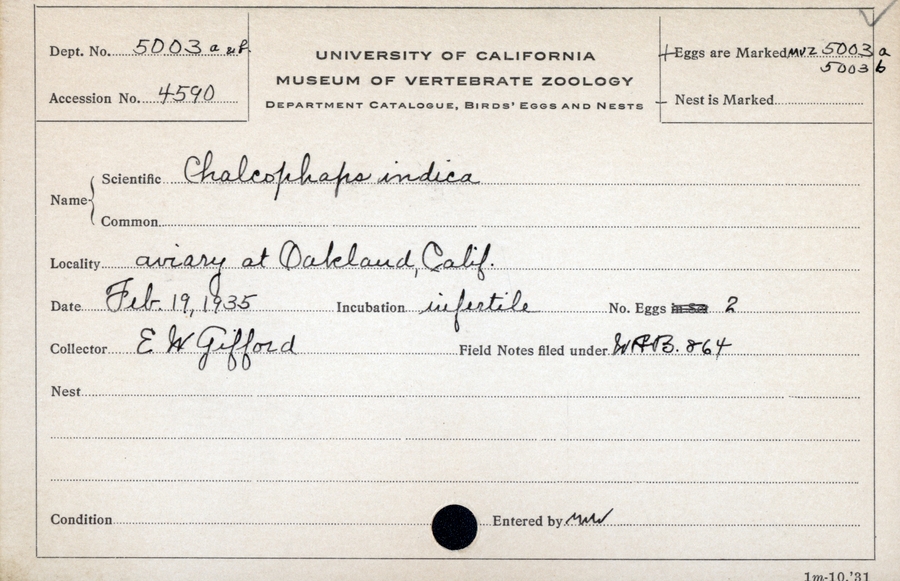 Dept. No. 5003 a & b.
Accession No. 4590
UNIVERSITY OF CALIFORNIA
MUSEUM OF VERTEBRATE ZOOLOGY
DEPARTMENT CATALOGUE, BIRDS' EGGS AND NESTS
Eggs are Marked MVZ 5003 a
5003 b
Nest is Marked
Name
Scientific Chalcophaps indica
Common
Locality aviary at Oakland, Calif.
Date Feb. 19, 1935 Incubation infertile No. Eggs 2
Collector E W Gifford Field Notes filed under 864
Nest
Condition Entered by
1m-10,'31